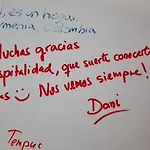 , es un negoc
rmenia, Colombia
Muchas gracias
ospitalidad, que suerte conocert
as Nos vemos siempre!
Dani
Tenpus